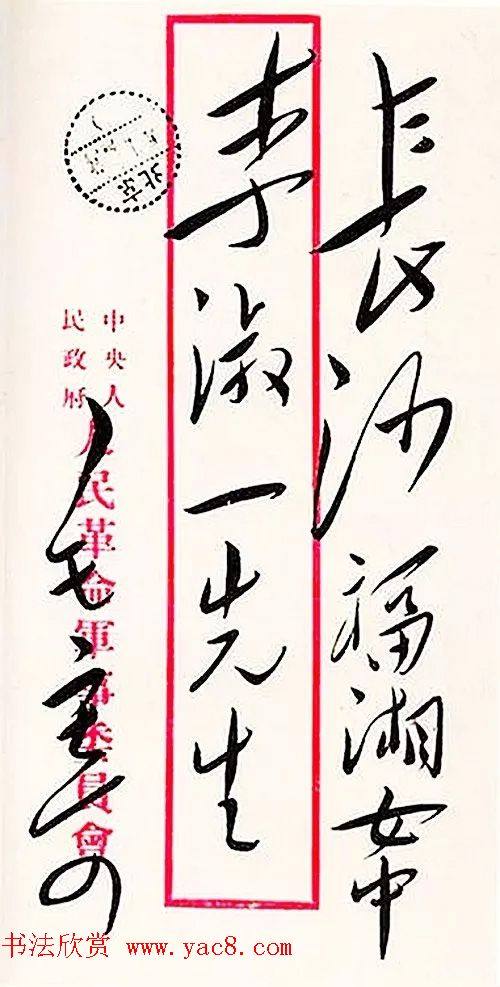 長沙福湘女中
李淑一先生
中央人
民政府
人民革命軍事委員會
毛
北京
书法欣赏 www.yac8.com